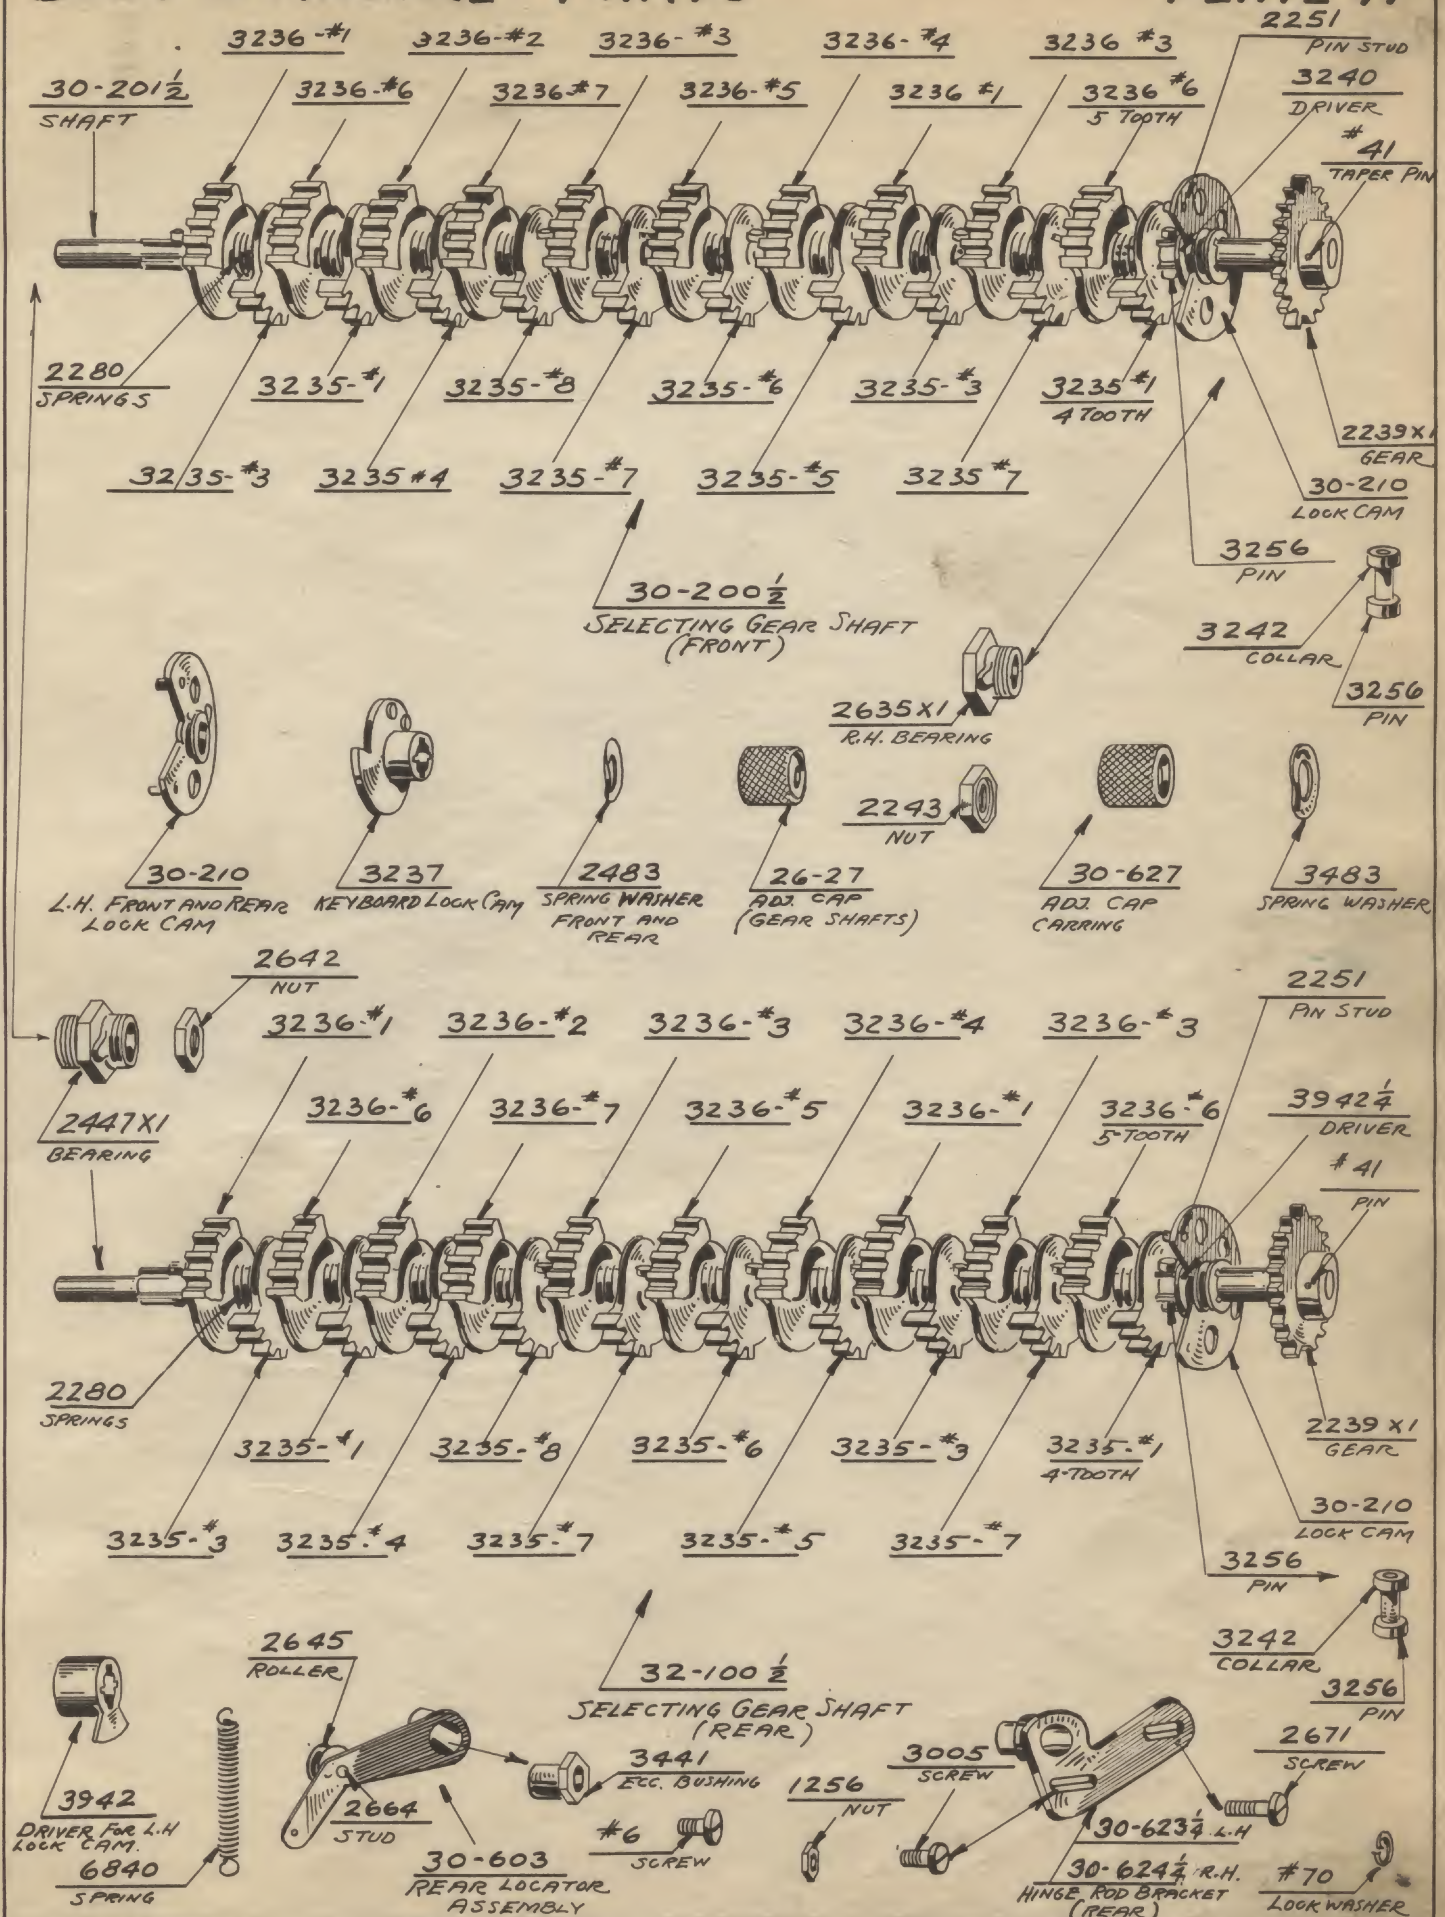 3236-#1
3236-#2
3236-#3
3236-#4
3236 #3
2251
PIN STUD
30-201½
SHAFT
3236-#6
3236#7
3236-#5
3236 #1
3236 #6
5 TOOTH
3240
DRIVER
#41
TAPER PIN
2280
SPRINGS
3235-#1
3235-#8
3235-#6
3235-#3
3235#1
4 TOOTH
2239X1
GEAR
3235-#3
3235#4
3235-#7
3235-#5
3235#7
30-210
LOCK CAM
3256
PIN
30-200½
SELECTING GEAR SHAFT
(FRONT)
3242
COLLAR
3256
PIN
2635X1
R.H. BEARING
2243
NUT
30-210
L.H. FRONT AND REAR
LOCK CAM
3237
KEYBOARD LOCK CAM
2483
SPRING WASHER
FRONT AND
REAR
26-27
ADJ. CAP
(GEAR SHAFTS)
30-627
ADJ. CAP
CARRING
3483
SPRING WASHER
2642
NUT
2251
PIN STUD
3236-#1
3236-#2
3236-#3
3236-#4
3236-#3
2447X1
BEARING
3236-#6
3236-#7
3236-#5
3236-#1
3236-#6
5-TOOTH
3942¼
DRIVER
#41
PIN
2280
SPRINGS
3235-#1
3235-#8
3235-#6
3235-#3
3235-#1
4-TOOTH
2239X1
GEAR
3235-#3
3235-#4
3235-#7
3235-#5
3235-#7
30-210
LOCK CAM
3256
PIN
2645
ROLLER
32-100½
SELECTING GEAR SHAFT
(REAR)
3242
COLLAR
3256
PIN
3942
DRIVER FOR L.H
LOCK CAM.
6840
SPRING
2664
STUD
30-603
REAR LOCATOR
ASSEMBLY
3441
ECC. BUSHING
#6
SCREW
1256
NUT
3005
SCREW
2671
SCREW
30-623¼ L.H
30-624¼ R.H.
HINGE ROD BRACKET
(REAR)
#70
LOCK WASHER